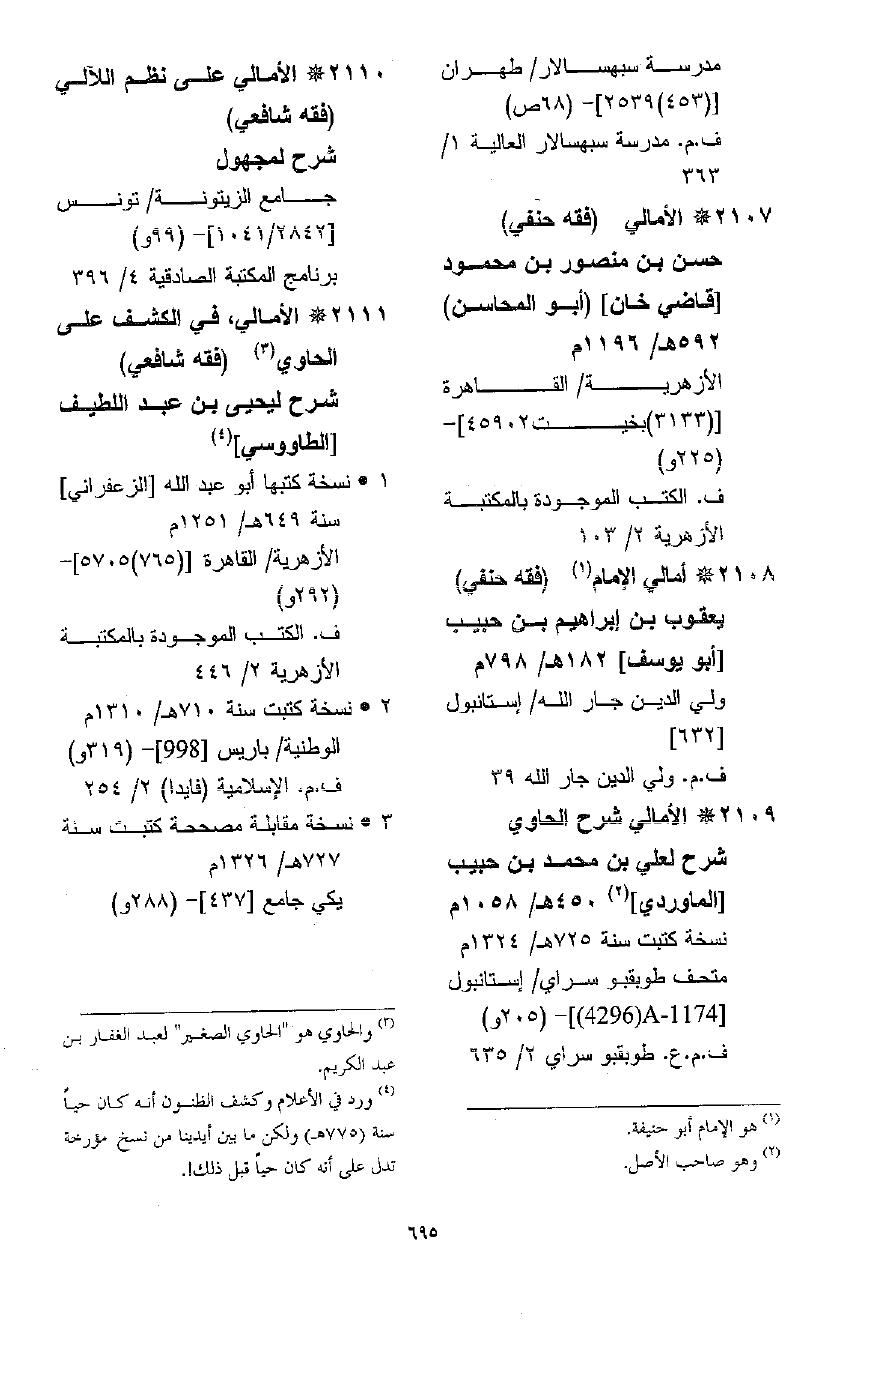 مدرسة سبهسالار/ طهران
[(٤٥٣)٢٥٣٩]– (٦٨ص)
ف.م. مدرسة سبهسالار العالية ١/
٣٦٣
٢١٠٧* الأمالي (فقه حنفي)
حسن بن منصور بن محمود
[قاضي خان] (أبو المحاسن)
٥٩٢هـ/ ١١٩٦م
الأزهرية/ القاهرة
[(٣١٣٣)بخيت٤٥٩٠٢]–
(٢٢٥و)
ف. الكتب الموجودة بالمكتبة
الأزهرية ٢/ ١٠٣
٢١٠٨* أمالي الإمام(١) (فقه حنفي)
يعقوب بن إبراهيم بن حبيب
[أبو يوسف] ١٨٢هـ/ ٧٩٨م
ولي الدين جار الله/ إستانبول
[٦٣٢]
ف.م. ولي الدين جار الله ٣٩
٢١٠٩* الأمالي شرح الحاوي
شرح لعلي بن محمد بن حبيب
[الماوردي](٢) ٤٥٠هـ/ ١٠٥٨م
نسخة كتبت سنة ٧٢٥هـ/ ١٣٢٤م
متحف طوبقبو سراي/ إستانبول
[(4296)A-1174]– (٢٠٥و)
ف.م.ع. طوبقبو سراي ٢/ ٦٣٥
(١) هو الإمام أبو حنيفة.
(٢) وهو صاحب الأصل.
٢١١٠* الأمالي على نظم اللآلي
(فقه شافعي)
شرح لمجهول
جامع الزيتونة/ تونس
[١٠٤١/٢٨٤٢]– (٩٩و)
برنامج المكتبة الصادقية ٤/ ٣٩٦
٢١١١* الأمالي، في الكشف على
الحاوي(٣) (فقه شافعي)
شرح ليحيى بن عبد اللطيف
[الطاووسي](٤)
١ • نسخة كتبها أبو عبد الله [الزعفراني]
سنة ٦٤٩هـ/ ١٢٥١م
الأزهرية/ القاهرة [(٧٦٥)٥٧٠٥]–
(٢٩٢و)
ف. الكتب الموجودة بالمكتبة
الأزهرية ٢/ ٤٤٦
٢ • نسخة كتبت سنة ٧١٠هـ/ ١٣١٠م
الوطنية/ باريس [998]– (٣١٩و)
ف.م. الإسلامية (فايدا) ٢/ ٢٥٤
٣ • نسخة مقابلة مصححة كتبت سنة
٧٢٧هـ/ ١٣٢٦م
يكي جامع [٤٣٧]– (٢٨٨و)
(٣) والحاوي هو "الحاوي الصغير" لعبد الغفار بن
عبد الكريم.
(٤) ورد في الأعلام وكشف الظنون أنه كان حياً
سنة (٧٧٥هـ) ولكن ما بين أيدينا من نسخ مؤرخة
تدل على أنه كان حياً قبل ذلك!.
٦٩٥